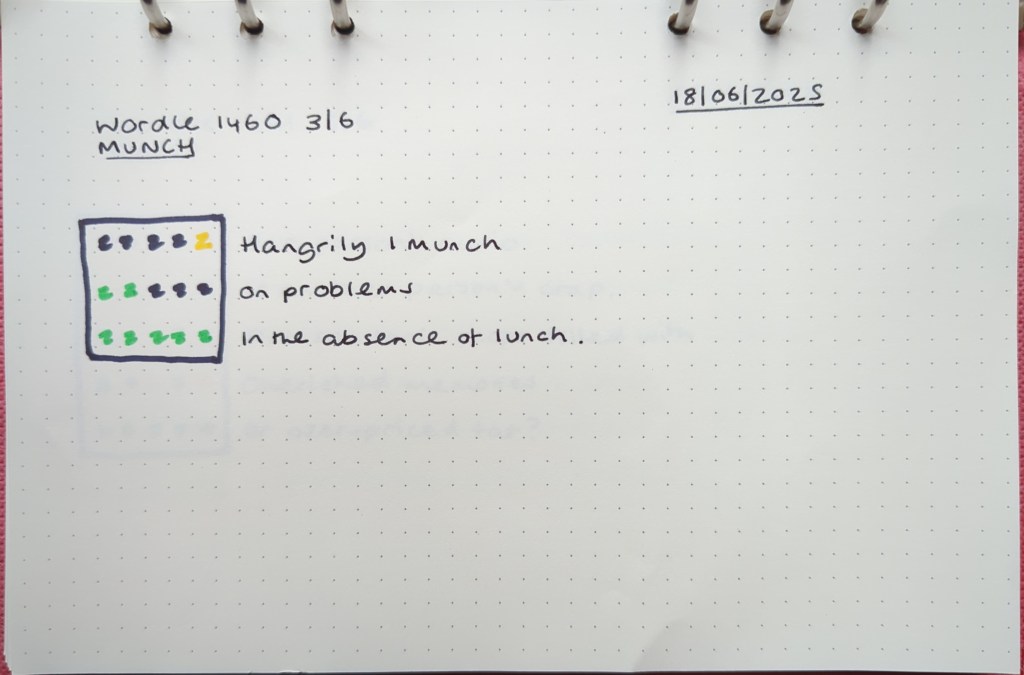 18/06/2025
Wordle 1460 3/6
MUNCH
Hangrily I munch
on problems
In the absence of lunch.